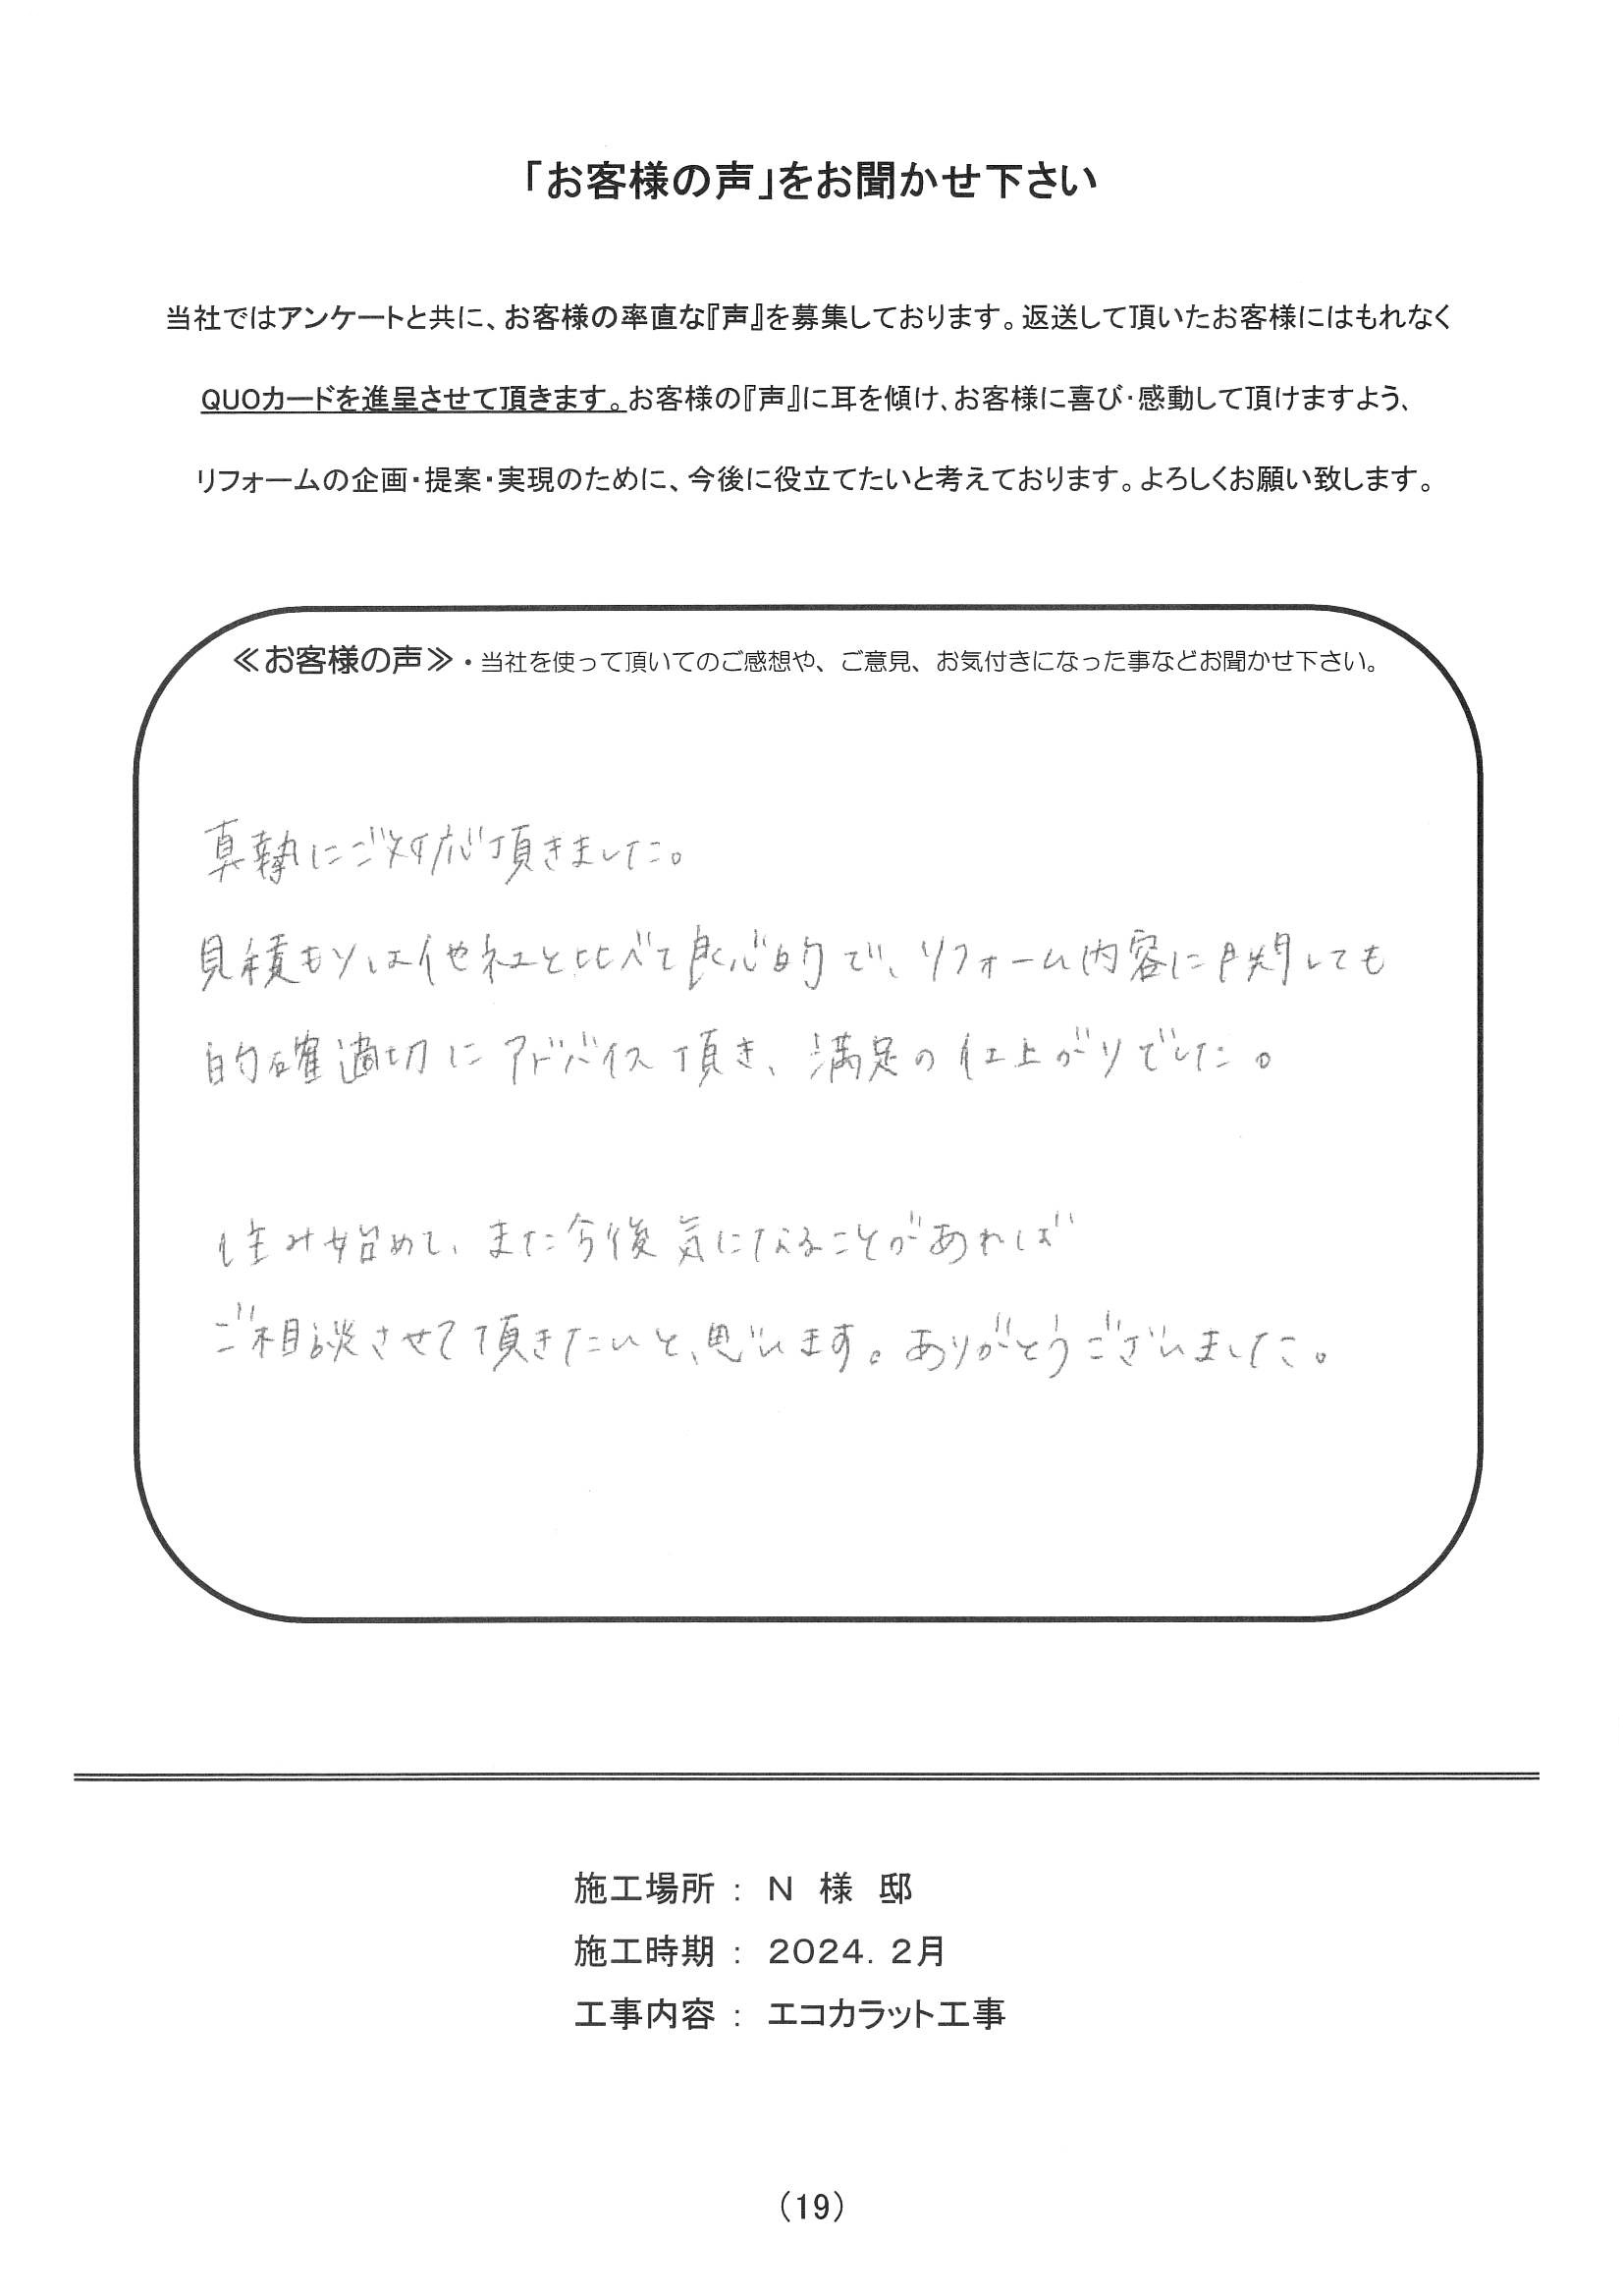 「お客様の声」をお聞かせ下さい
当社ではアンケートと共に、お客様の率直な『声』を募集しております。返送して頂いたお客様にはもれなく
QUOカードを進呈させて頂きます。お客様の『声』に耳を傾け、お客様に喜び・感動して頂けますよう、
リフォームの企画・提案・実現のために、今後に役立てたいと考えております。よろしくお願い致します。
≪お客様の声≫・当社を使って頂いてのご感想や、ご意見、お気付きになった事などお聞かせ下さい。
真摯にご対応頂きました。
見積もりは他社と比べて良心的で、リフォーム内容に関しても
的確適切にアドバイス頂き、満足の仕上がりでした。
住み始めて、また今後気になることがあれば
ご相談させて頂きたいと、思います。ありがとうございました。
施工場所 : N 様 邸
施工時期 : 2024. 2月
工事内容 : エコカラット工事
(19)